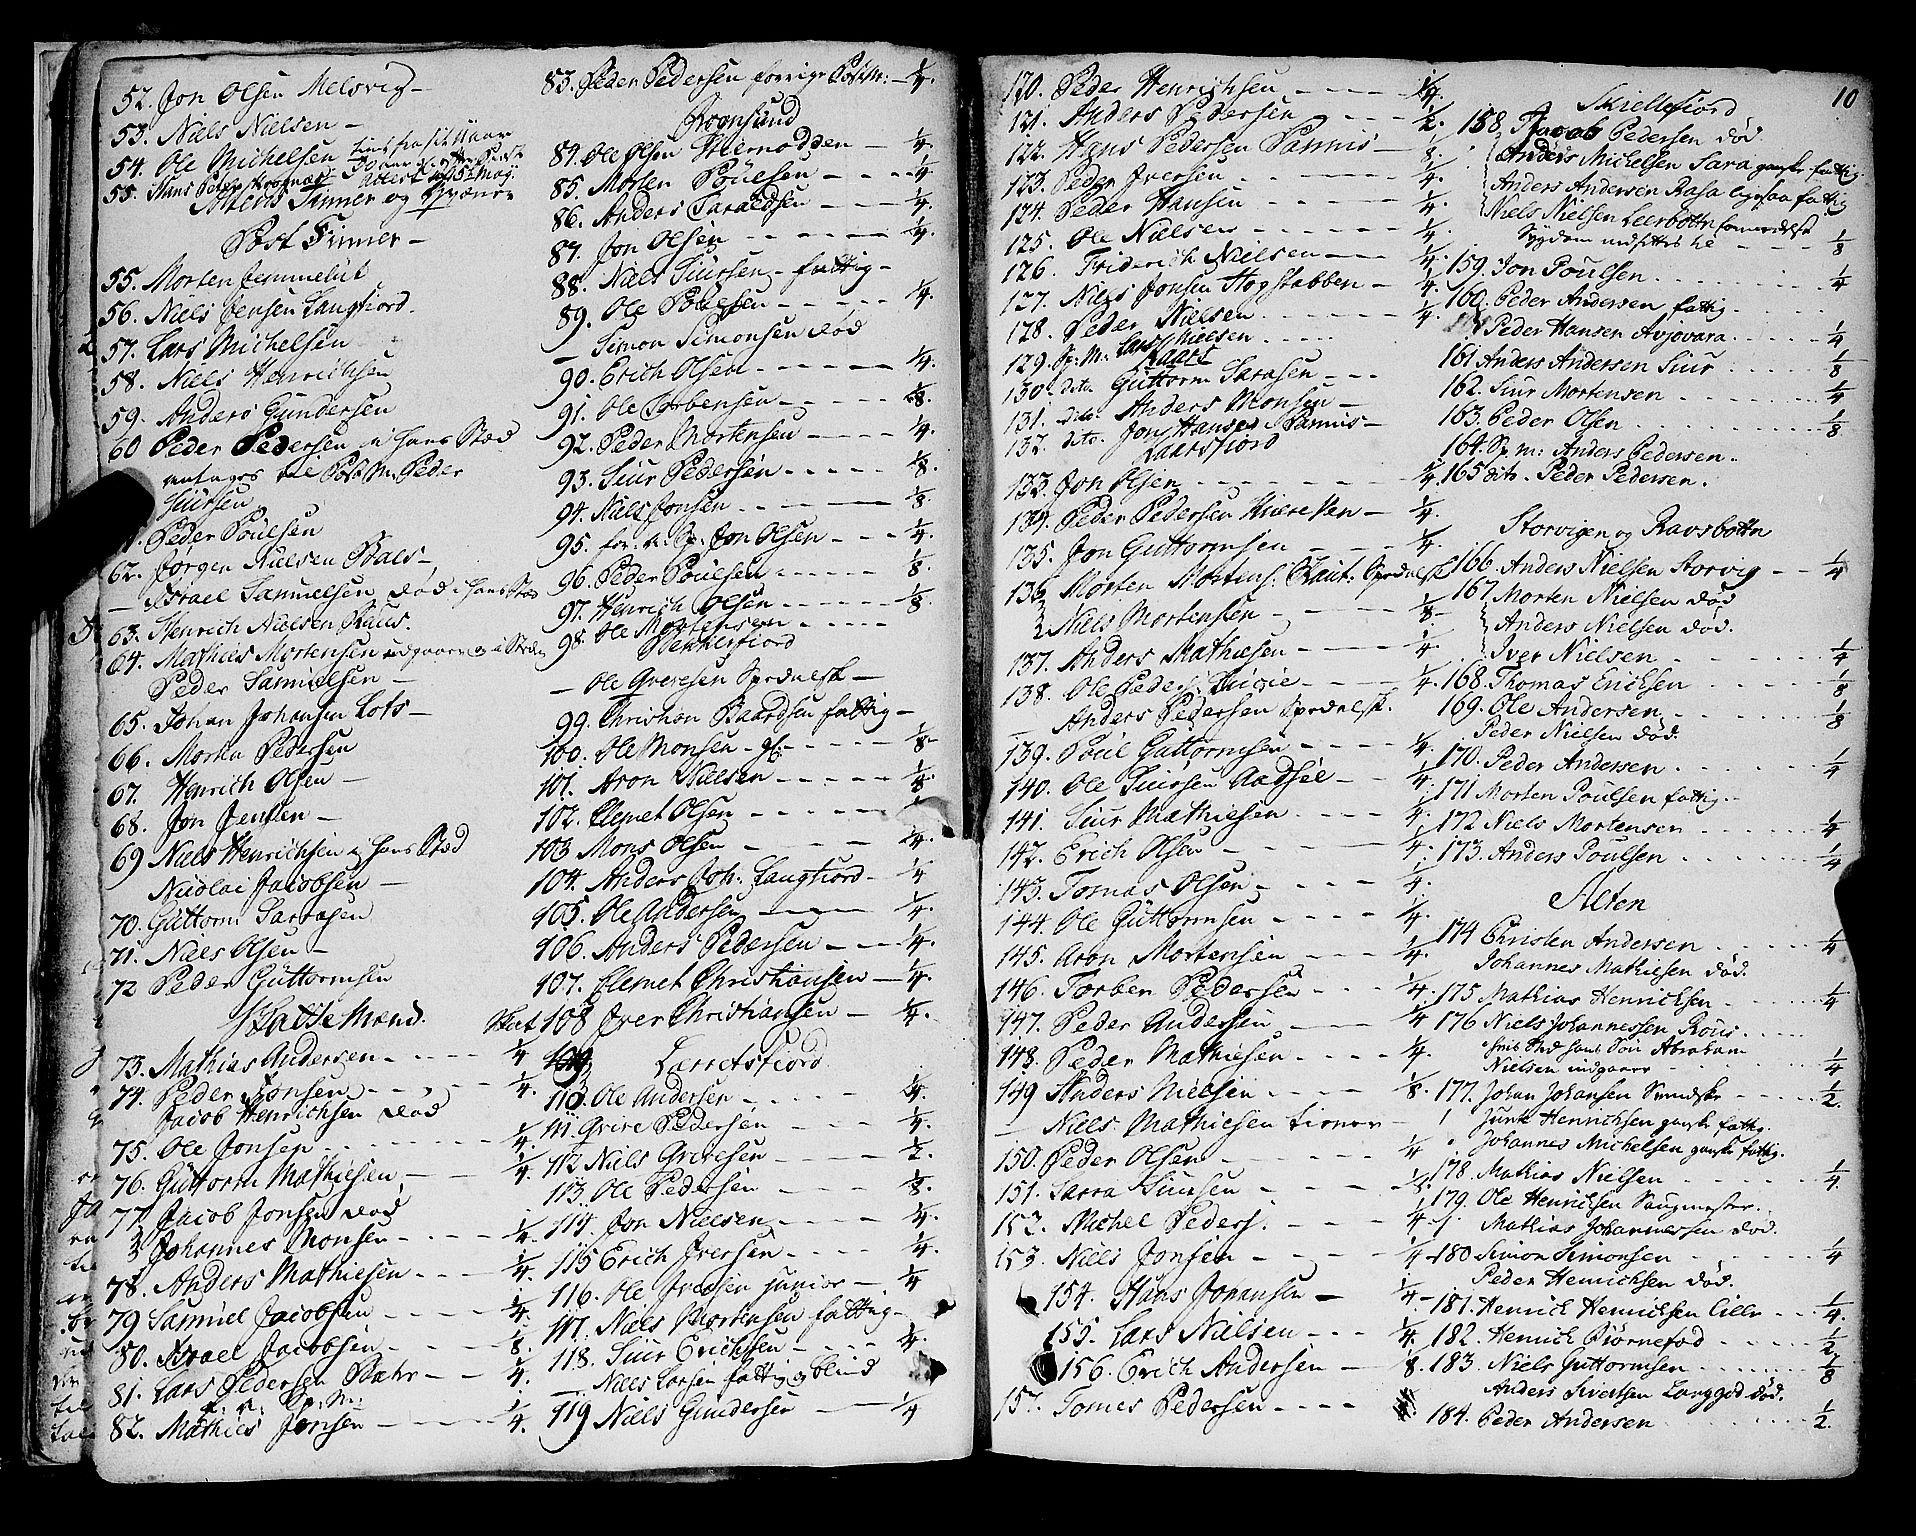 52. Jon Olsen Melsvig —
53. Niels Nielsen —
54. Ole Michelsen
55. Hans Peter
Finner og
Post Finner —
55. Morten Jemmelut
56. Niels Jensen Langfiord.
57. Lars Michelsen
58. Niels Henrichsen
59. Anders Gundersen
60 Peder Pedersen i hans Stæd
antages Post M. Peder
Siursen
Peder Poulsen
62. Jørgen Nielsen
— Israel Samuelsen død i hans Stæd
63. Henrich Nielsen
64. Mathies Mortensen udgaaer i Stæden
Peder Samuelsen —
65. Johan Johansen Lots —
66. Morten Pedersen
67. Henrich Olsen —
68. Jon Jensen —
69 Niels Henrichsen i hans Stæd
Nicolai Jacobsen —
70. Guttorm Sarasen
71. Niels Olsen —
72 Peder Guttormsen
Skatte Mænd. Skat
73. Mathias Andersen — 1/4
74. Peder Jonsen — 1/4.
Jacob Henrichsen død
75. Ole Jonsen 1/4
76. Guttorm Mathiesen, — 1/4.
77. Jacob Jonsen død
Johannes Monsen 1/4.
78. Anders Mathiesen 1/4.
79 Samuel Jacobsen 1/4.
80. Israel Jacobsen 1/8.
81. Lars Pedersen 1/4.
82. Mathies Jonsen 1/4.
83. Peder Pedersen forrige Postm: — 1/4.
84. Ole Olsen — 1/4.
85. Morten Poulsen 1/4
86. Anders Taraldsen 1/4.
87. Jon Olsen 1/4.
88. Niels Siursen — fattig —
89. Ole Poulsen 1/4.
— Simon Simonsen død
90. Erich Olsen 1/4.
91. Ole Torbensen 1/8.
92. Peder Mortensen 1/4.
93. Siur Pedersen 1/8.
94. Niels Jonsen 1/8.
95. for. Jon Olsen 1/4.
96. Peder Poulsen 1/8.
97. Henrich Olsen 1/8.
98. Ole Mortensen
— Ole Gveresen Sprdnelsk —
99. Christian Baardsen fattig —
100. Ole Monsen 1/8
101. Aron Nielsen 1/8.
102. Clemet Olsen
103 Mons Olsen 1/4.
104. Anders Joh: Langfiord — 1/4
105. Ole Andersen 1/4.
106. Anders Pedersen 1/4.
107. Clemet Christiansen — 1/4.
108 Iver Christiansen — 1/4.
109 Lerretsfiord
110. Ole Andersen 1/4.
111. Gvere Pedersen 1/4.
112 Niels Gveresen 1/2.
113. Ole Pedersen 1/8.
114. Jon Nielsen 1/4.
115 Erich Iversen 1/4.
116. Ole Iversen junior — 1/4
117. Niels Mortensen fattig —
118. Siur Erichsen 1/4.
— Niels Larsen fattig og blind
119 Niels Gundersen — 1/4
120. Peder Henrichsen 1/4.
121. Anders Pedersen 1/2.
122. Hans Pedersen — 1/8.
123. Peder Iversen 1/4.
124. Peder Hansen 1/4.
125. Ole Nielsen 1/4
126. Friderich Nielsen 1/4.
127. Niels Jonsen Hogstabben — 1/4
128. Peder Nielsen 1/4.
129. Sp: M: Lars Nielsen
130. dito. Guttorm Sarasen
131. dito Anders Monsen —
132. dito. Jon Hansen —
133. Jon Olsen 1/4.
134. Peder Pedersen — 1/4.
135. Jon Guttormsen 1/4.
136 Morten Mortens:
Niels Mortensen 1/8
137. Anders Mathiesen 1/4.
138. Ole Peders: 1/4.
— Anders Pedersen Sprdnelsk.
139. Poul Guttormsen 1/4.
140. Ole Siursen 1/4
141. Siur Mathiesen 1/4.
142. Erich Olsen 1/4.
143. Tomas Olsen 1/4.
144. Ole Guttormsen 1/4.
145. Aron Mortensen 1/4.
146. Torben Pedersen 1/4.
147. Peder Andersen 1/4
148. Peder Mathiesen 1/4.
149 Anders Nielsen 1/8.
— Niels Mathiesen
150. Peder Olsen 1/4
151. Sarra Siursen
152. Michel Peders: 1/4
153. Niels Jonsen 1/4
154. Hans Johansen — 1/4
155. Lars Nielsen 1/4.
156. Erich Andersen — 1/8
157. Tomes Pedersen
10
Skiellefiord
158. Jacob Pedersen død
Anders Michelsen Sara ganske fattig.
Anders Andersen Rasa ligesaa fattig
Niels Nielsen Leerbottn
Sygdom nedsættes til 1/8
159. Jon Poulsen 1/4
160. Peder Andersen fattig.
Peder Hansen Avjovara 1/4
161 Anders Andersen Siur 1/8
162. Siur Mortensen 1/4
163. Peder Olsen 1/8
164. Sp. m: Anders Pedersen.
165 dito. Peder Pedersen.
Storvigen og Ravsbottn
166 Anders Nielsen Storvig 1/4
167. Morten Nielsen død
Anders Nielsen død.
Iver Nielsen 1/4
168. Thomas Ericksen 1/8
169. Ole Andersen 1/8
Peder Nielsen død.
170. Peder Andersen 1/4
171 Morten Poulsen fattig.
172 Niels Mortensen 1/4
173. Anders Poulsen 1/4
Alten
174 Christen Andersen 1/4
Johannes Mathiesen død.
175 Mathias Henricksen 1/4
176 Niels Johannessen
hans Søn Abraham
Nielsen indgaaer 1/4
177. Johan Johansen Svendske 1/2.
Junte Henrichsen ganske fattig.
Johannes Michelsen ganske fattig.
178. Mathias Nielsen 1/4.
179. Ole Henrichsen Saugmester.
Mathias Johannessen død.
180 Simon Simonsen 1/4
Peder Henrichsen død.
181. Henrich Henrichsen Lille 1/4.
182. Henrick Biørnefod 1/2
183. Niels Guttormsen 1/8
Anders Sivertsen død.
184. Peder Andersen 1/2.